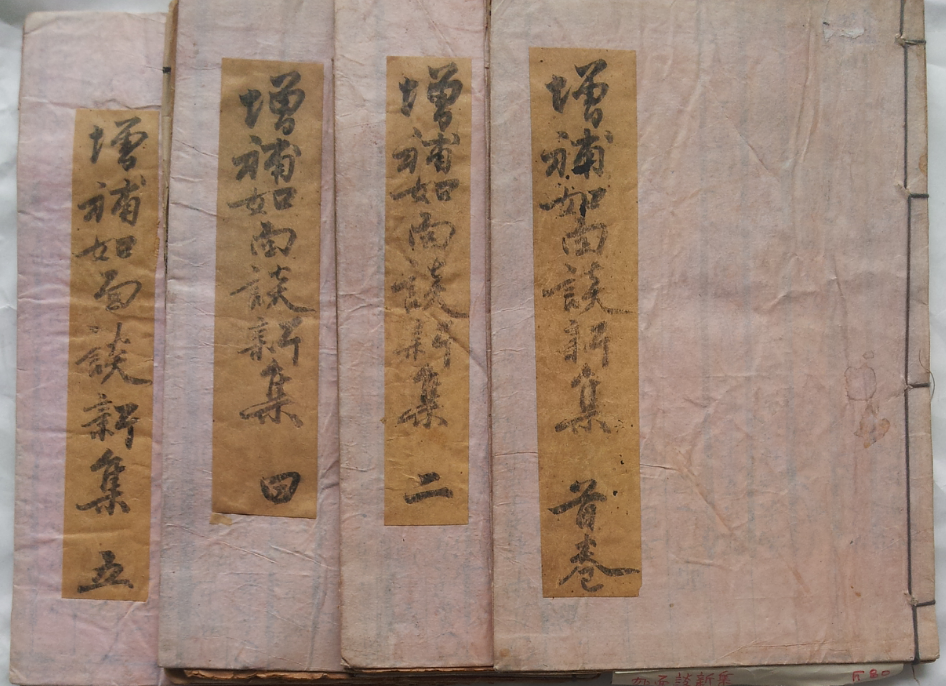 增補如面談新集 首卷
增補如面談新集 二
增補如面談新集 四
增補如面談新集 五
如面談新集